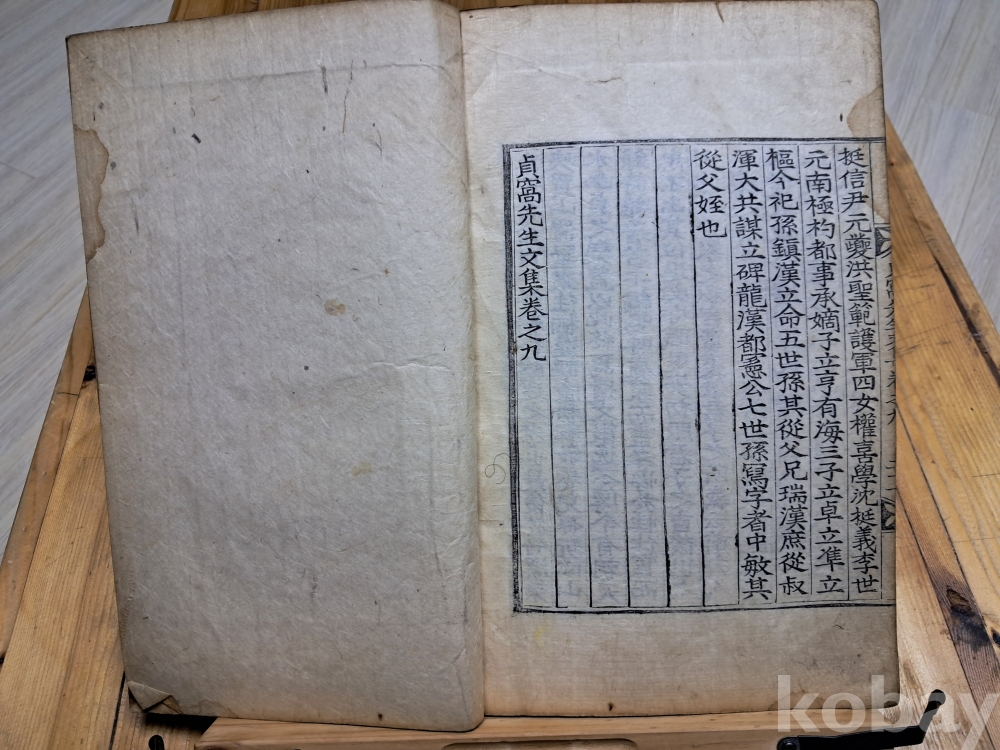 挺信尹元夔洪聖範護軍四女權喜學沈挺義李世
元南極杓都事承嫡子立亨有海三子立卓立準立
樞今祀孫鎮漢立命五世孫其從父兄瑞漢庶從叔
渾大共謀立碑龍漢都憲公七世孫寫字者中敏其
從父姪也
貞窩先生文集卷之九
kobay